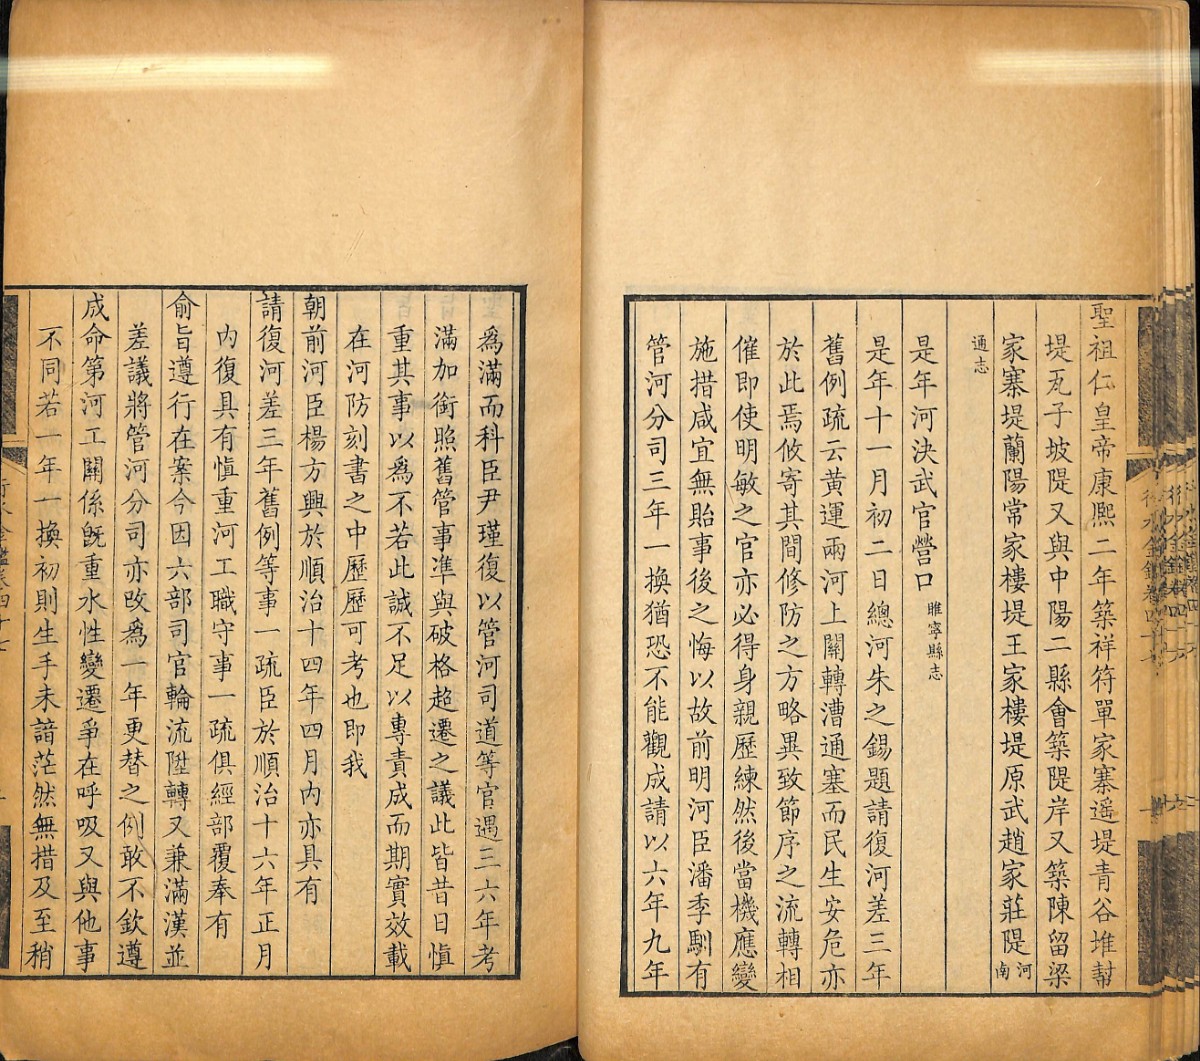 聖祖仁皇帝康熙二年築祥符單家寨遥堤青谷堆幇
堤瓦子坡隄又與中陽二縣會築隄岸又築陳留梁
家寨堤蘭陽常家樓堤王家樓堤原武趙家莊隄河南
通志
是年河決武官營口睢寧縣志
是年十一月初二日總河朱之錫題請復河差三年
舊例疏云黄運兩河上關轉漕通塞而民生安危亦
於此焉攸寄其間修防之方略異致節序之流轉相
催即使明敏之官亦必得身親歷練然後當機應變
施措咸宜無貽事後之悔以故前明河臣潘季馴有
管河分司三年一換猶恐不能觀成請以六年九年
爲滿而科臣尹瑾復以管河司道等官遇三六年考
滿加銜照舊管事凖與破格超遷之議此皆昔日愼
重其事以爲不若此誠不足以專責成而期實效載
在河防刻書之中歷歷可考也即我
朝前河臣楊方興於順治十四年四月內亦具有
請復河差三年舊例等事一疏臣於順治十六年正月
內復具有愼重河工職守事一疏俱經部覆奉有
俞旨遵行在案今因六部司官輪流陞轉又兼滿漢並
差議將管河分司亦改爲一年更替之例敢不欽遵
成命第河工關係旣重水性變遷爭在呼吸又與他事
不同若一年一換初則生手未諳茫然無措及至稍